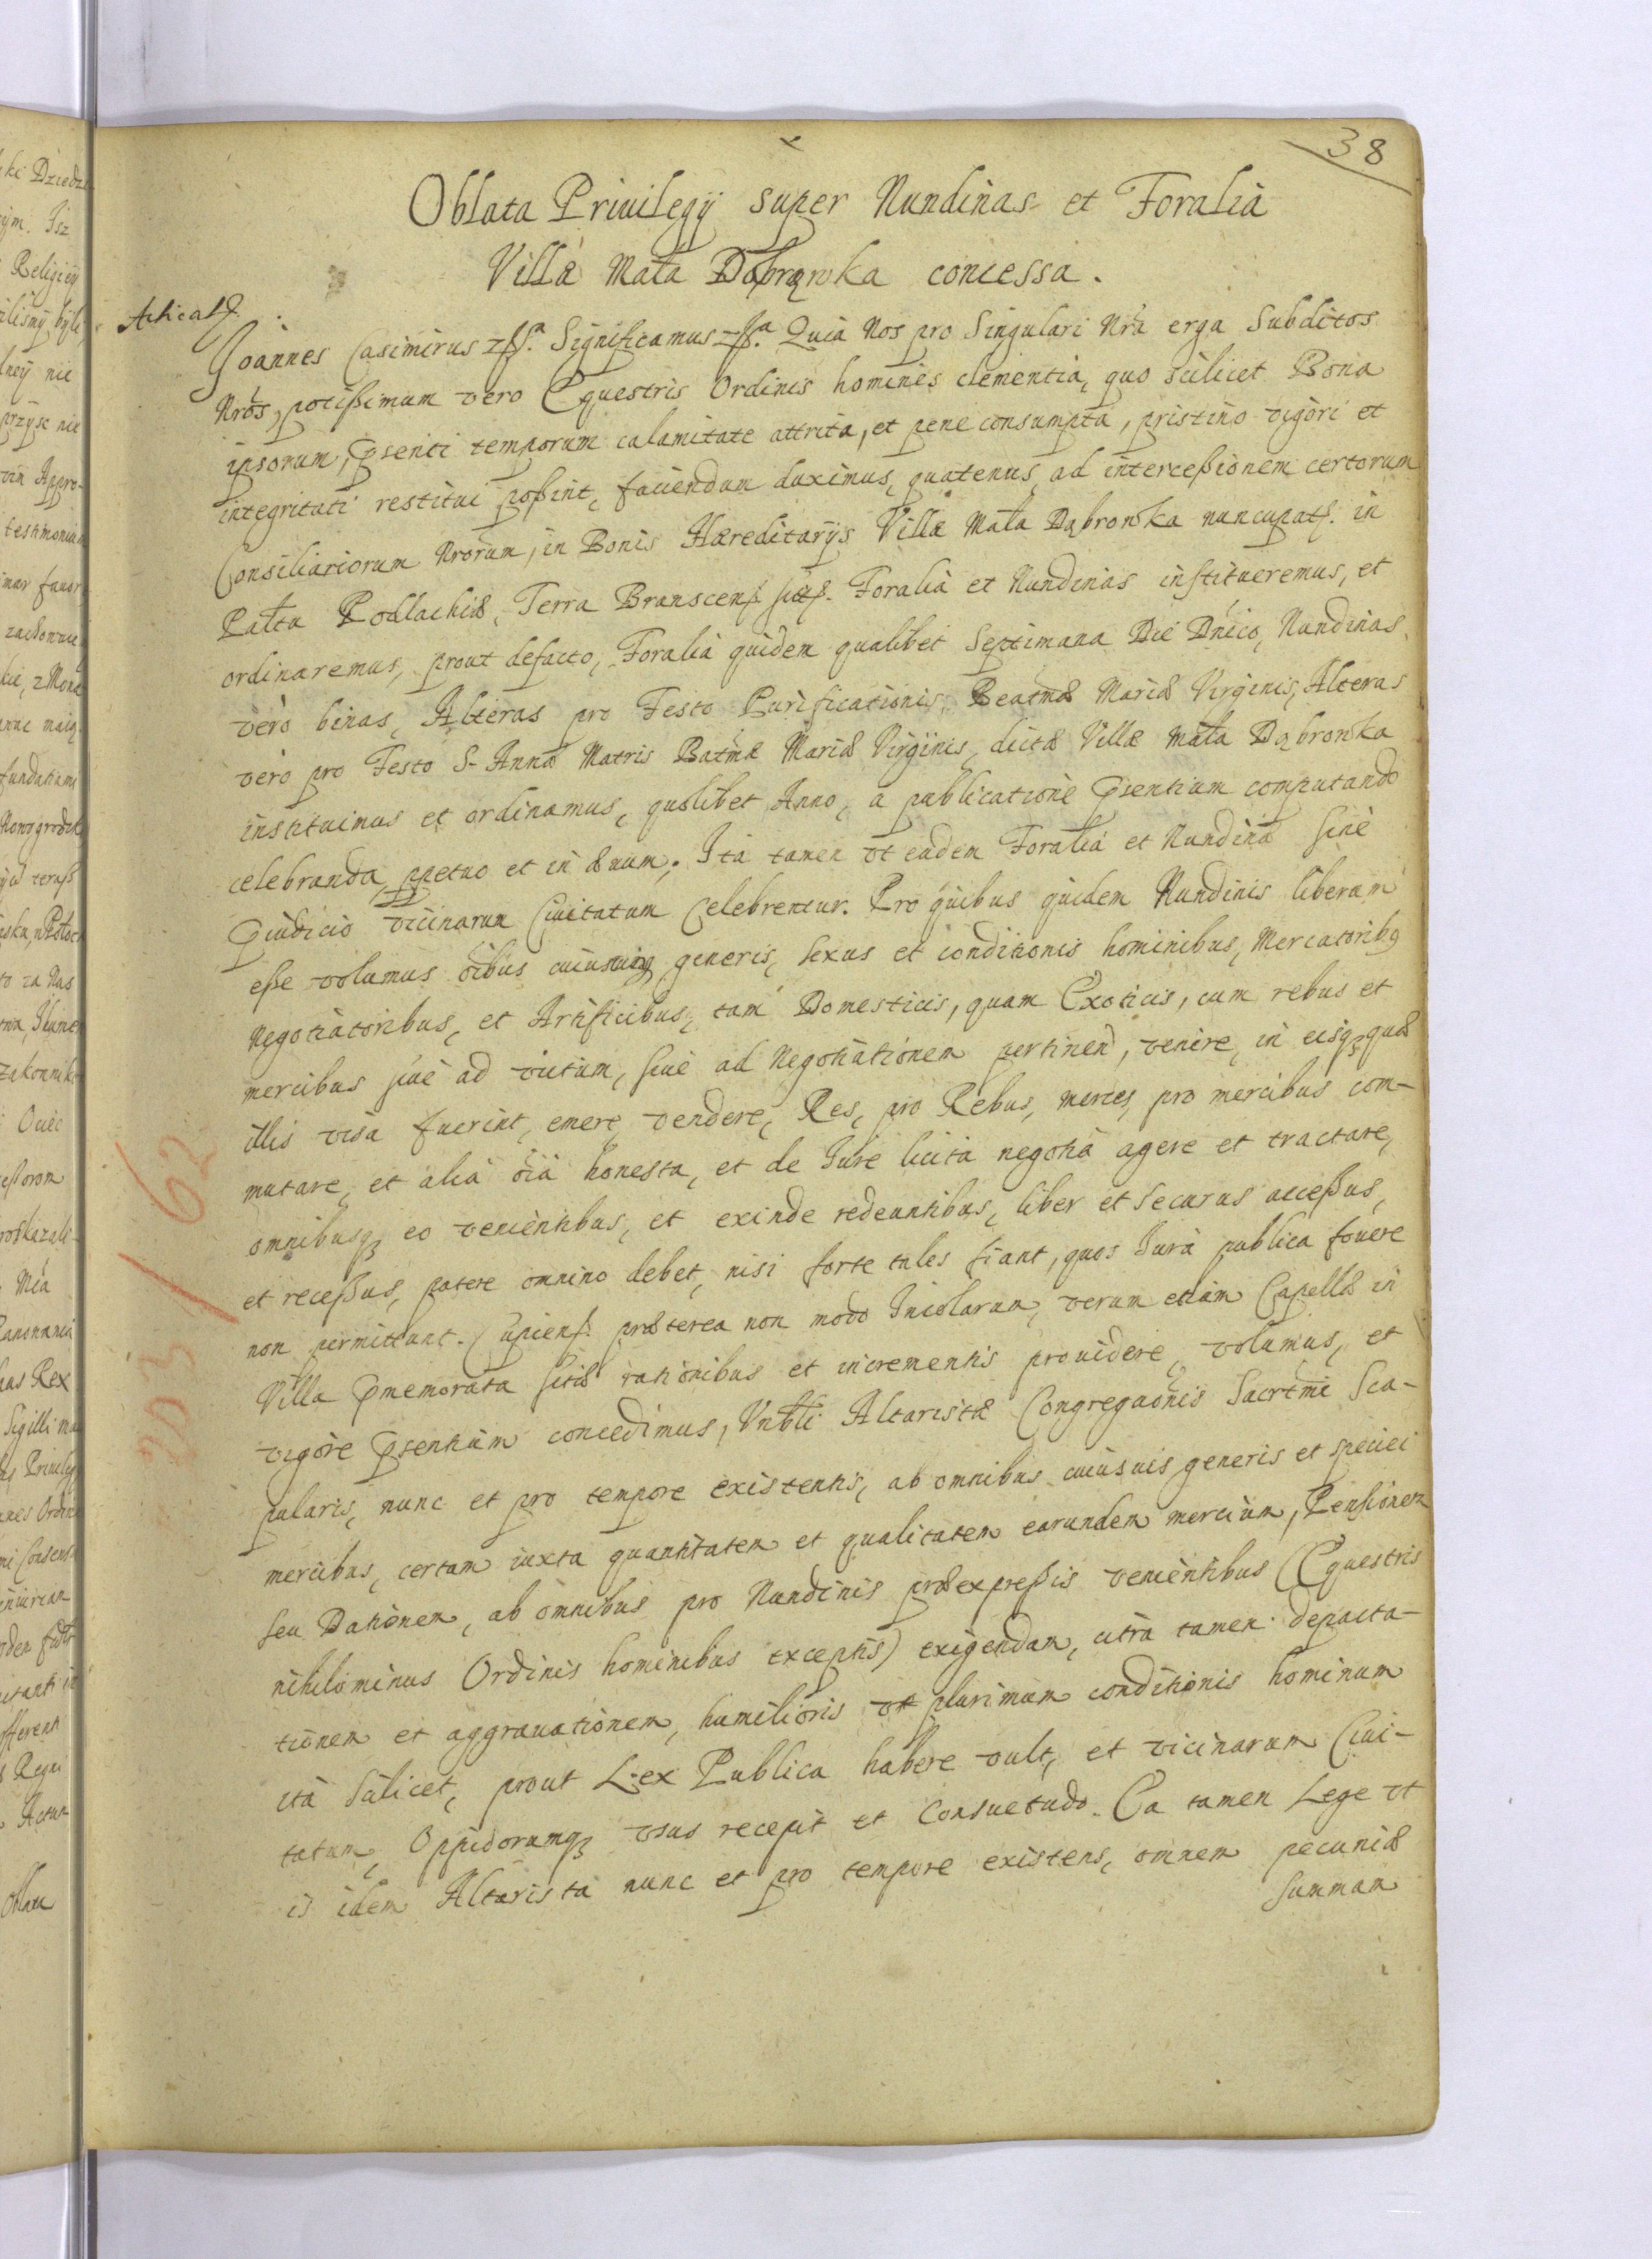 38
Oblata Priuilegÿ super Nundinas et Foralia
Villæ Mała Dąbrowka concessa.
Joannes Casimirus Significamus Quia Nos pro Singulari Nra erga Subditos
Nros, potißimum vero Equestris Ordinis homines clementia, quo scilicet Bona
ipsorum, psenti temporum calamitate attrita, et pene consumpta, pristino vigori et
integritati restitui poßint, faciendum duximus, quatenus, ad interceßionem certorum
Consiliariorum Nrorum, in Bonis Hæreditarÿs Villæ Mała Dąbrowka nuncupat. in
Pałtu Podlachiæ, Terra Branscen. Foralia et Nundinas institueremus, et
ordinaremus, prout defacto, Foralia quidem qualibet Septimana Die Dnico, Nundinas
vero binas, Alteras pro Festo Purificationis Beatmæ Mariæ Virginis, Alteras
vero pro Festo S. Annæ Matris Batmæ Mariæ Virginis, dictæ Villæ Mała Dąbrowka
instituimus et ordinamus, quolibet Anno, a publicatione psentium computando
celebranda, ppetuo et in æuum. Ita tamen vt eadem Foralia et Nundinæ sine
piudicio vicinarum Ciuitatum Celebrentur. Pro quibus quidem Nundinis liberum
eße volumus oibus cuiusuis generis, sexus et conditionis hominibus, Mercatoribq
Negotiatoribus, et Artificibus, tam Domesticis, quam Exoticis, cum rebus et
mercibus siue ad victum, siue ad Negotiationem pertinen, venire, in eisq quæ
illis visa fuerint, emere, vendere, Res, pro Rebus, merces, pro mercibus com-
mutare, et alia oia honesta, et de Jure licita negotia agere et tractare,
omnibusq eo venientibus, et exinde redeuntibus, liber et securus acceßus,
et receßus, patere omnino debet, nisi forte tales fiant, quos Jura publica fouere
non permittunt. Cupien. præterea non modo Incolarum, verum etiam Capellæ in
Villa pmemorata sitæ rationibus et incrementis prouidere, volumus, et
vigore psentium concedimus, Vnbli Altaristæ Congregaonis Sacrtmi Sca-
pularis, nunc et pro tempore existentis, ab omnibus cuiusuis generis et speciei
mercibus, certam iuxta quantitatem et qualitatem earundem mercium, Pensionem
seu Dationem, ab omnibus pro Nundinis præexpreßis venientibus (Equestris
nihilominus Ordinis hominibus exceptis) exigendam, citra tamen depacta-
tionem et aggrauationem, humilioris vt plurimum conditionis hominum
ita scilicet, prout Lex Publica habere vult, et vicinarum Ciui-
tatum, Oppidorumq vsus recepit et Consuetudo. Ea tamen Lege vt
is idem Altarista nunc et pro tempore existens, omnem pecuniæ
summam
203/62